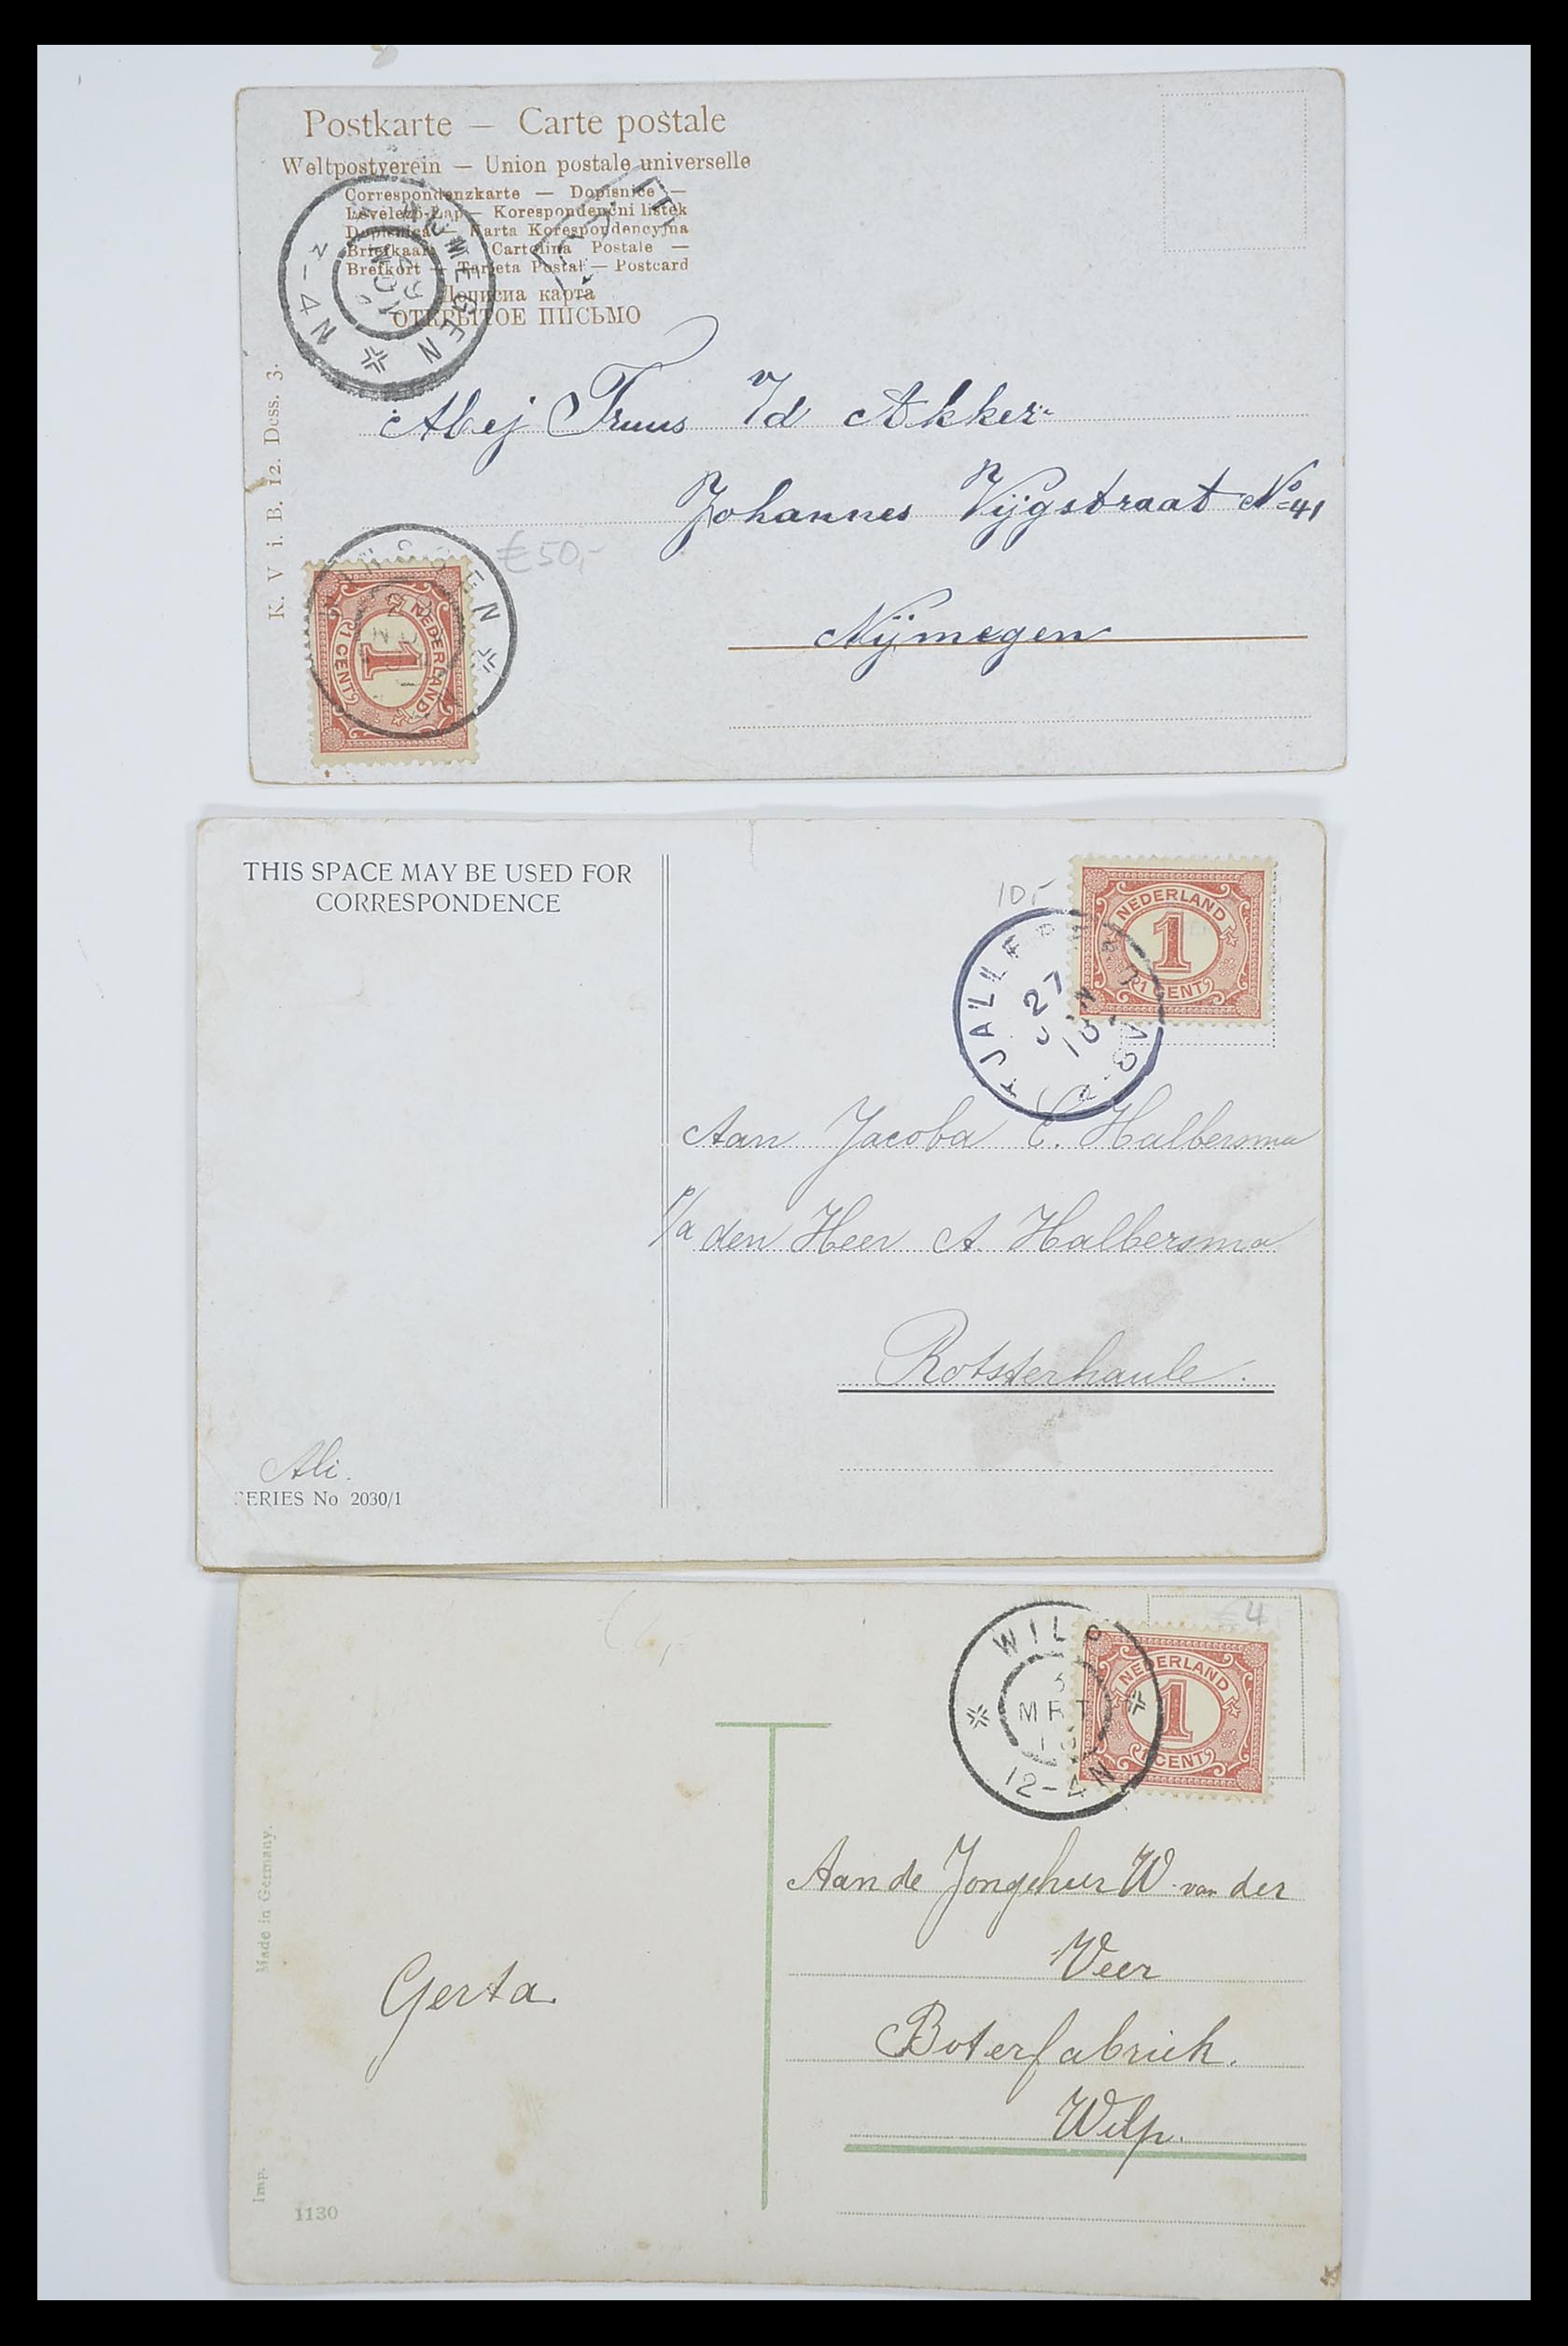 Postkarte — Carte postale
Weltpostverein — Union postale universelle
Correspondenzkarte — Dopisnice —
Levelező-Lap — Korespondenčni listek
Dopisnica — Karta Korespondencyjna
Briefkaart — Cartolina Postale —
Brefkort — Tarjeta Postal — Postcard
Дописна карта
ОТКРЫТОЕ ПИСЬМО
NIJMEGEN
4-7 N
K. V i. B. 12. Dess. 3.
Mej Truus v/d Akker
Johannes Vijgstraat No 41
€50,-
Nijmegen
NEDERLAND
1
1 CENT
THIS SPACE MAY BE USED FOR
CORRESPONDENCE
10,-
NEDERLAND
1
1 CENT
TJALLEB
27
10
Aan Jacoba C. Halbersma
p/a den Heer A. Halbersma
Rotsterhaule.
Ali.
SERIES No 2030/1
€4
WILP
MRT
12-4N
NEDERLAND
1
1 CENT
Made in Germany.
Imp.
1130
Gerta.
Aan de Jongeheer W. van der
Veer
Boterfabriek.
Wilp.